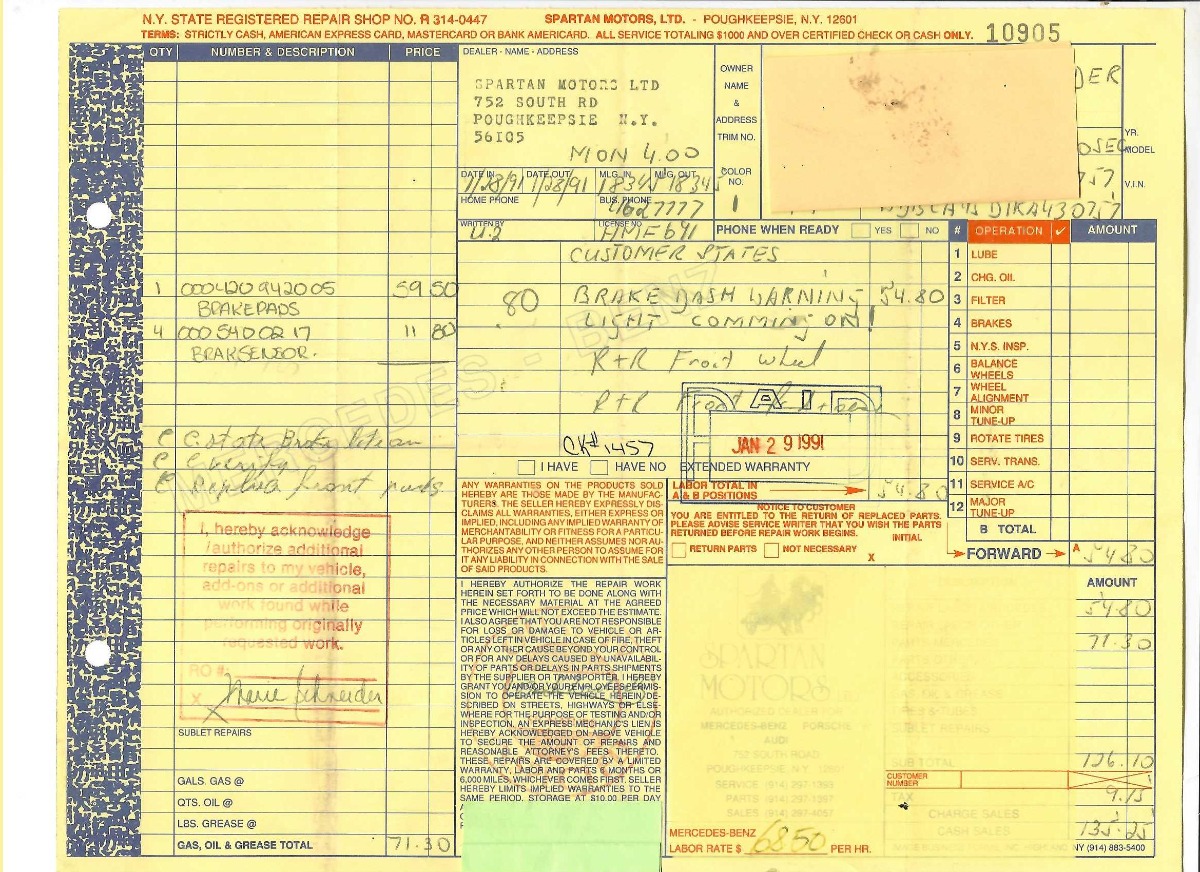 N.Y. STATE REGISTERED REPAIR SHOP NO. R 314-0447
SPARTAN MOTORS, LTD. - POUGHKEEPSIE, N.Y. 12601
TERMS: STRICTLY CASH, AMERICAN EXPRESS CARD, MASTERCARD OR BANK AMERICARD. ALL SERVICE TOTALING $1000 AND OVER CERTIFIED CHECK OR CASH ONLY.
10905
QTY NUMBER & DESCRIPTION PRICE
1 000420 9420 05 59 50
BRAKEPADS
4 000 540 02 17 11 80
BRAKSENSOR.
C C. state Brake
C C Verify
C Replace front pads
I, hereby acknowledge
/authorize additional
repairs to my vehicle,
add-ons or additional
work found while
performing originally
requested work.
RO #:
X Marie Schneider
SUBLET REPAIRS
GALS. GAS @
QTS. OIL @
LBS. GREASE @
GAS, OIL & GREASE TOTAL 71.30
DEALER - NAME - ADDRESS
SPARTAN MOTORS LTD
752 SOUTH RD
POUGHKEEPSIE N.Y.
56105
MON 4.00
DATE IN DATE OUT MLG. IN MLG. OUT
1/28/91 1/28/91 18345 18345
HOME PHONE BUS. PHONE
WRITTEN BY LICENSE NO.
U.2 HMF691
OWNER
NAME
&
ADDRESS
TRIM NO.
DER
YR.
MODEL
V.I.N.
COLOR
NO.
1
PHONE WHEN READY YES NO
CUSTOMER STATES
80 BRAKE DASH WARNING 54.80
LIGHT COMMING ON!
R+R Front Wheel
R+R Front
MERCEDES - BENZ
PAID
JAN 2 9 1991
CK# 1457
I HAVE HAVE NO EXTENDED WARRANTY
# OPERATION ✓ AMOUNT
1 LUBE
2 CHG. OIL
3 FILTER
4 BRAKES
5 N.Y.S. INSP.
6 BALANCE WHEELS
7 WHEEL ALIGNMENT
8 MINOR TUNE-UP
9 ROTATE TIRES
10 SERV. TRANS.
11 SERVICE A/C
12 MAJOR TUNE-UP
B TOTAL
ANY WARRANTIES ON THE PRODUCTS SOLD
HEREBY ARE THOSE MADE BY THE MANUFAC-
TURERS. THE SELLER HEREBY EXPRESSLY DIS-
CLAIMS ALL WARRANTIES, EITHER EXPRESS OR
IMPLIED, INCLUDING ANY IMPLIED WARRANTY OF
MERCHANTABILITY OR FITNESS FOR A PARTICU-
LAR PURPOSE, AND NEITHER ASSUMES NOR AU-
THORIZES ANY OTHER PERSON TO ASSUME FOR
IT ANY LIABILITY IN CONNECTION WITH THE SALE
OF SAID PRODUCTS.
LABOR TOTAL IN
A & B POSITIONS 54.80
NOTICE TO CUSTOMER
YOU ARE ENTITLED TO THE RETURN OF REPLACED PARTS.
PLEASE ADVISE SERVICE WRITER THAT YOU WISH THE PARTS
RETURNED BEFORE REPAIR WORK BEGINS.
INITIAL
RETURN PARTS NOT NECESSARY X
FORWARD A 54.80
I HEREBY AUTHORIZE THE REPAIR WORK
HEREIN SET FORTH TO BE DONE ALONG WITH
THE NECESSARY MATERIAL AT THE AGREED
PRICE WHICH WILL NOT EXCEED THE ESTIMATE.
I ALSO AGREE THAT YOU ARE NOT RESPONSIBLE
FOR LOSS OR DAMAGE TO VEHICLE OR AR-
TICLES LEFT IN VEHICLE IN CASE OF FIRE, THEFT
OR ANY OTHER CAUSE BEYOND YOUR CONTROL
OR FOR ANY DELAYS CAUSED BY UNAVAILABIL-
ITY OF PARTS OR DELAYS IN PARTS SHIPMENTS
BY THE SUPPLIER OR TRANSPORTER. I HEREBY
GRANT YOU AND/OR YOUR EMPLOYEES PERMIS-
SION TO OPERATE THE VEHICLE HEREIN DE-
SCRIBED ON STREETS, HIGHWAYS OR ELSE-
WHERE FOR THE PURPOSE OF TESTING AND/OR
INSPECTION. AN EXPRESS MECHANIC'S LIEN IS
HEREBY ACKNOWLEDGED ON ABOVE VEHICLE
TO SECURE THE AMOUNT OF REPAIRS AND
REASONABLE ATTORNEY'S FEES THERETO.
THESE REPAIRS ARE COVERED BY A LIMITED
WARRANTY, LABOR AND PARTS 6 MONTHS OR
6,000 MILES, WHICHEVER COMES FIRST. SELLER
HEREBY LIMITS IMPLIED WARRANTIES TO THE
SAME PERIOD. STORAGE AT $10.00 PER DAY
SPARTAN
MOTORS
AUTHORIZED DEALER FOR
MERCEDES-BENZ PORSCHE
AUDI
752 SOUTH ROAD
POUGHKEEPSIE, N.Y. 12601
SERVICE (914) 297-1399
PARTS (914) 297-1397
SALES (914) 297-4057
MERCEDES-BENZ
LABOR RATE $ 68.50 PER HR.
AMOUNT
54.80
71.30
SUBLET REPAIRS
SUB TOTAL 126.10
CUSTOMER
NUMBER
TAX 9.15
CHARGE SALES
CASH SALES 135.25
NY (914) 883-5400